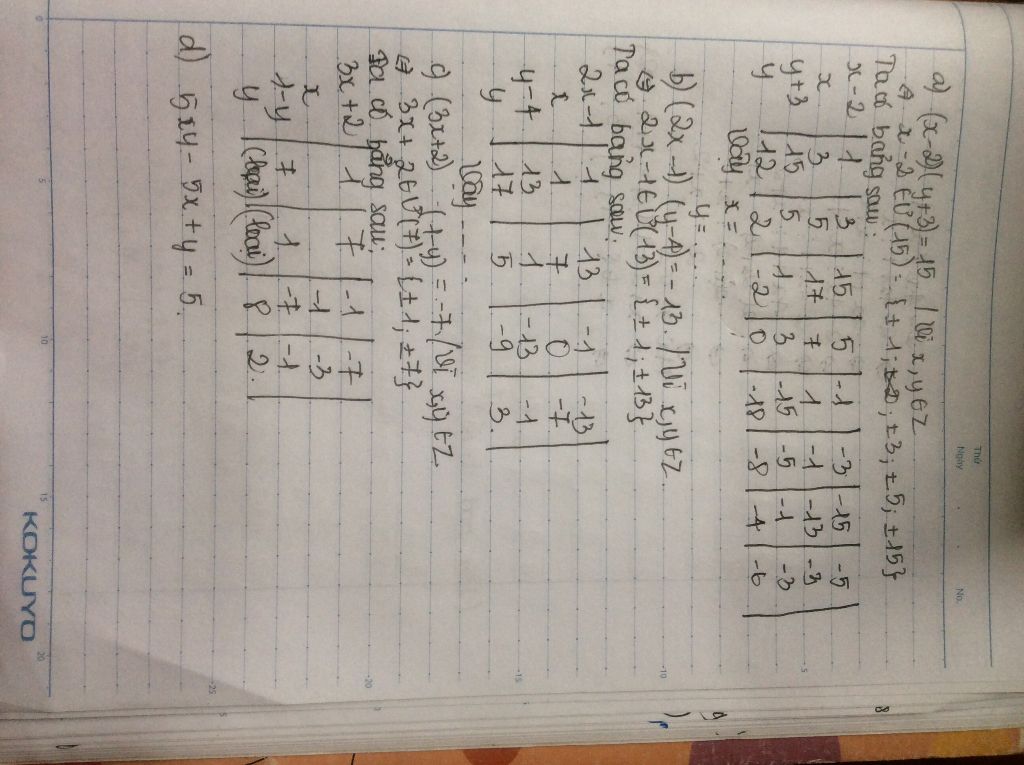 Thứ
Ngày
No.
a) (x-2)(y+3)=15 /Với x,y∈Z
⇔ x-2 ∈ Ư(15) = {±1; ±3; ±5; ±15}
Ta có bảng sau:
x-2 | 1 | 3 | 15 | 5 | -1 | -3 | -15 | -5
x | 3 | 5 | 17 | 7 | 1 | -1 | -13 | -3
y+3 | 15 | 5 | 1 | 3 | -15 | -5 | -1 | -3
y | 12 | 2 | -2 | 0 | -18 | -8 | -4 | -6
Vậy x = .....
y = .....
b) (2x-1) (y-4) = -13. /Với x,y∈Z
⇔ 2x-1∈Ư(13) = {±1; ±13}
Ta có bảng sau:
2x-1 | 1 | 13 | -1 | -13
x | 1 | 7 | 0 | -7
y-4 | 13 | 1 | -13 | -1
y | 17 | 5 | -9 | 3.
Vậy .....
c) (3x+2) . (1-y) = -7. /Với x,y∈Z.
⇔ 3x+2∈Ư(7) = {±1; ±7}
Ta có bảng sau:
3x+2 | 1 | 7 | -1 | -7
x | | | -1 | -3
1-y | 7 | 1 | -7 | -1
y | (loại) | (loại) | 8 | 2.
d) 5xy - 5x + y = 5.
KOKUYO